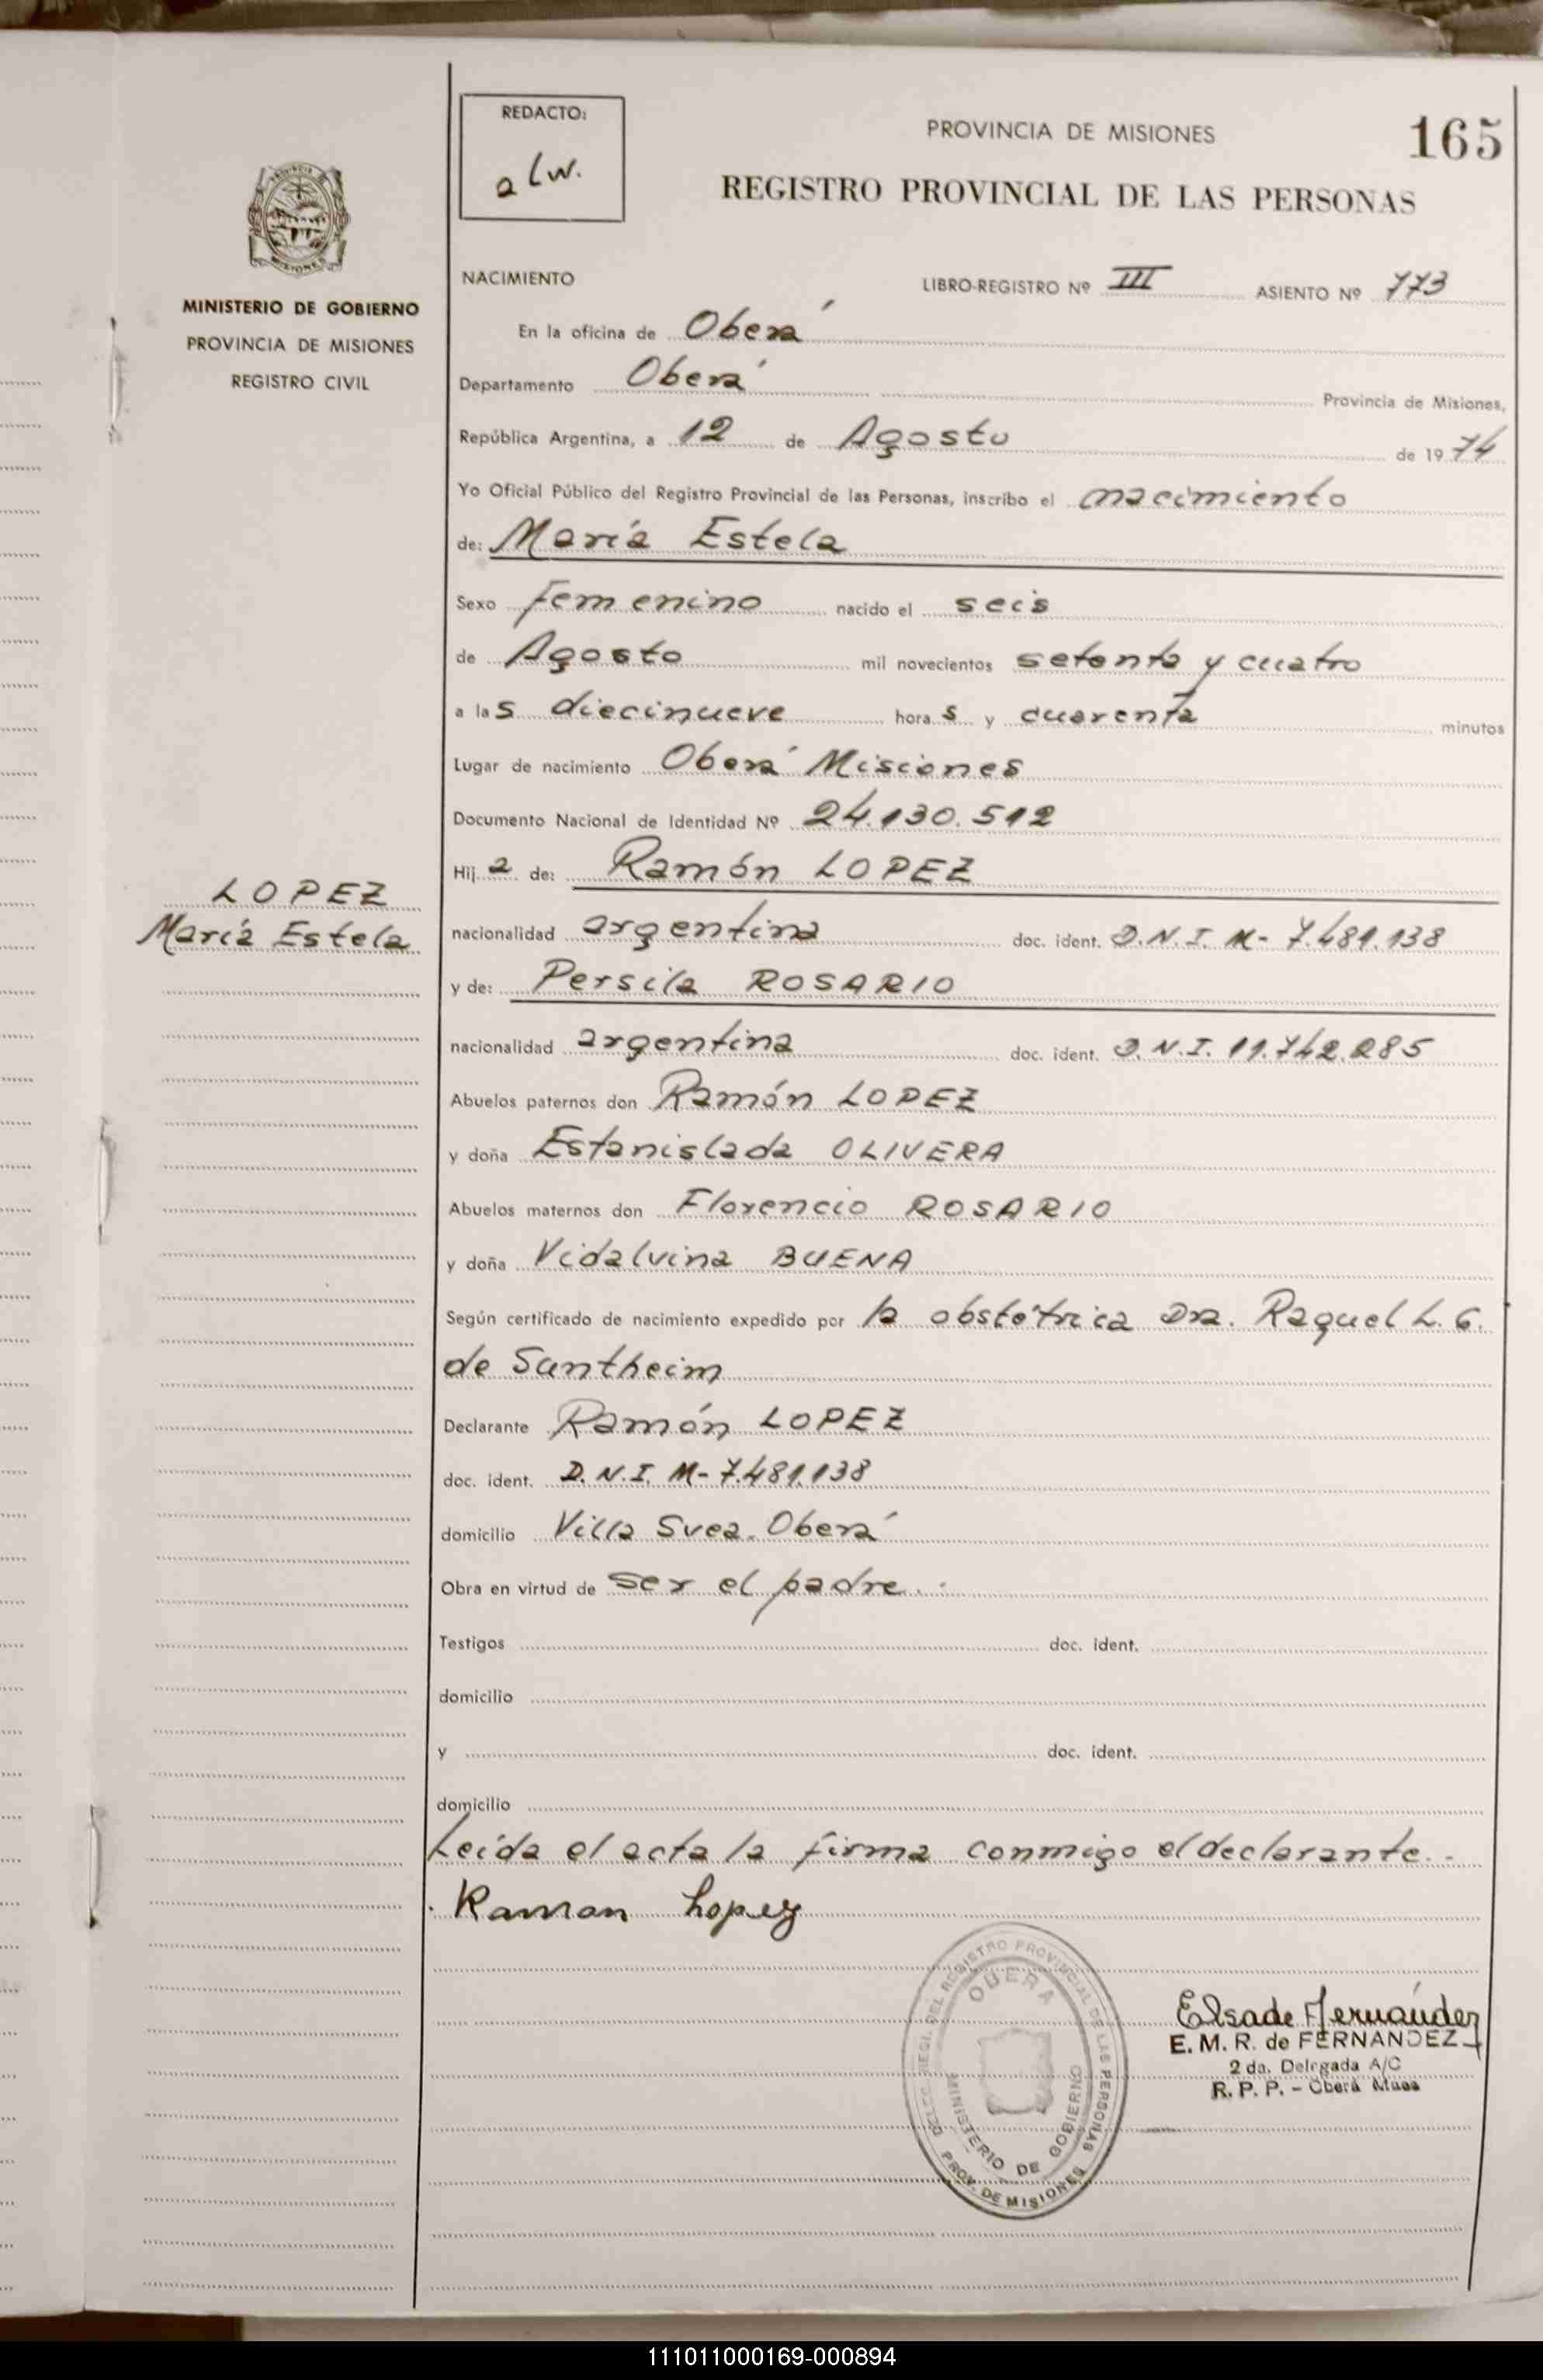 165
REDACTO:
alw.
PROVINCIA DE MISIONES
REGISTRO PROVINCIAL DE LAS PERSONAS
MINISTERIO DE GOBIERNO
PROVINCIA DE MISIONES
REGISTRO CIVIL
NACIMIENTO LIBRO-REGISTRO Nº III ASIENTO Nº 773
En la oficina de Oberá
Departamento Oberá Provincia de Misiones,
República Argentina, a 12 de Agosto de 1974
Yo Oficial Público del Registro Provincial de las Personas, inscribo el nacimiento
de: María Estela
Sexo femenino nacido el seis
de Agosto mil novecientos setenta y cuatro
a las diecinueve horas y cuarenta minutos
Lugar de nacimiento Oberá Misiones
Documento Nacional de Identidad Nº 24.130.512
Hija de: Ramón LOPEZ
LOPEZ
María Estela
nacionalidad argentina doc. ident. D.N.I. M- 7.481.138
y de: Persila ROSARIO
nacionalidad argentina doc. ident. D.N.I. 11.742.285
Abuelos paternos don Ramón LOPEZ
y doña Estanislada OLIVERA
Abuelos maternos don Florencio ROSARIO
y doña Vidalvina BUENA
Según certificado de nacimiento expedido por la obstétrica Dra. Raquel L. G.
de Suntheim
Declarante Ramón LOPEZ
doc. ident. D.N.I. M- 7.481.138
domicilio Villa Svea. Oberá
Obra en virtud de ser el padre..
Testigos doc. ident.
domicilio
y doc. ident.
domicilio
Leída el acta la firma conmigo el declarante..
Ramon Lopez
Elsa de Fernández
E. M. R. de FERNANDEZ
2 da. Delegada A/C
R. P. P. - Oberá Mnes
REGISTRO PROVINCIAL DE LAS PERSONAS
PROV. DE MISIONES
MINISTERIO DE GOBIERNO
111011000169-000894